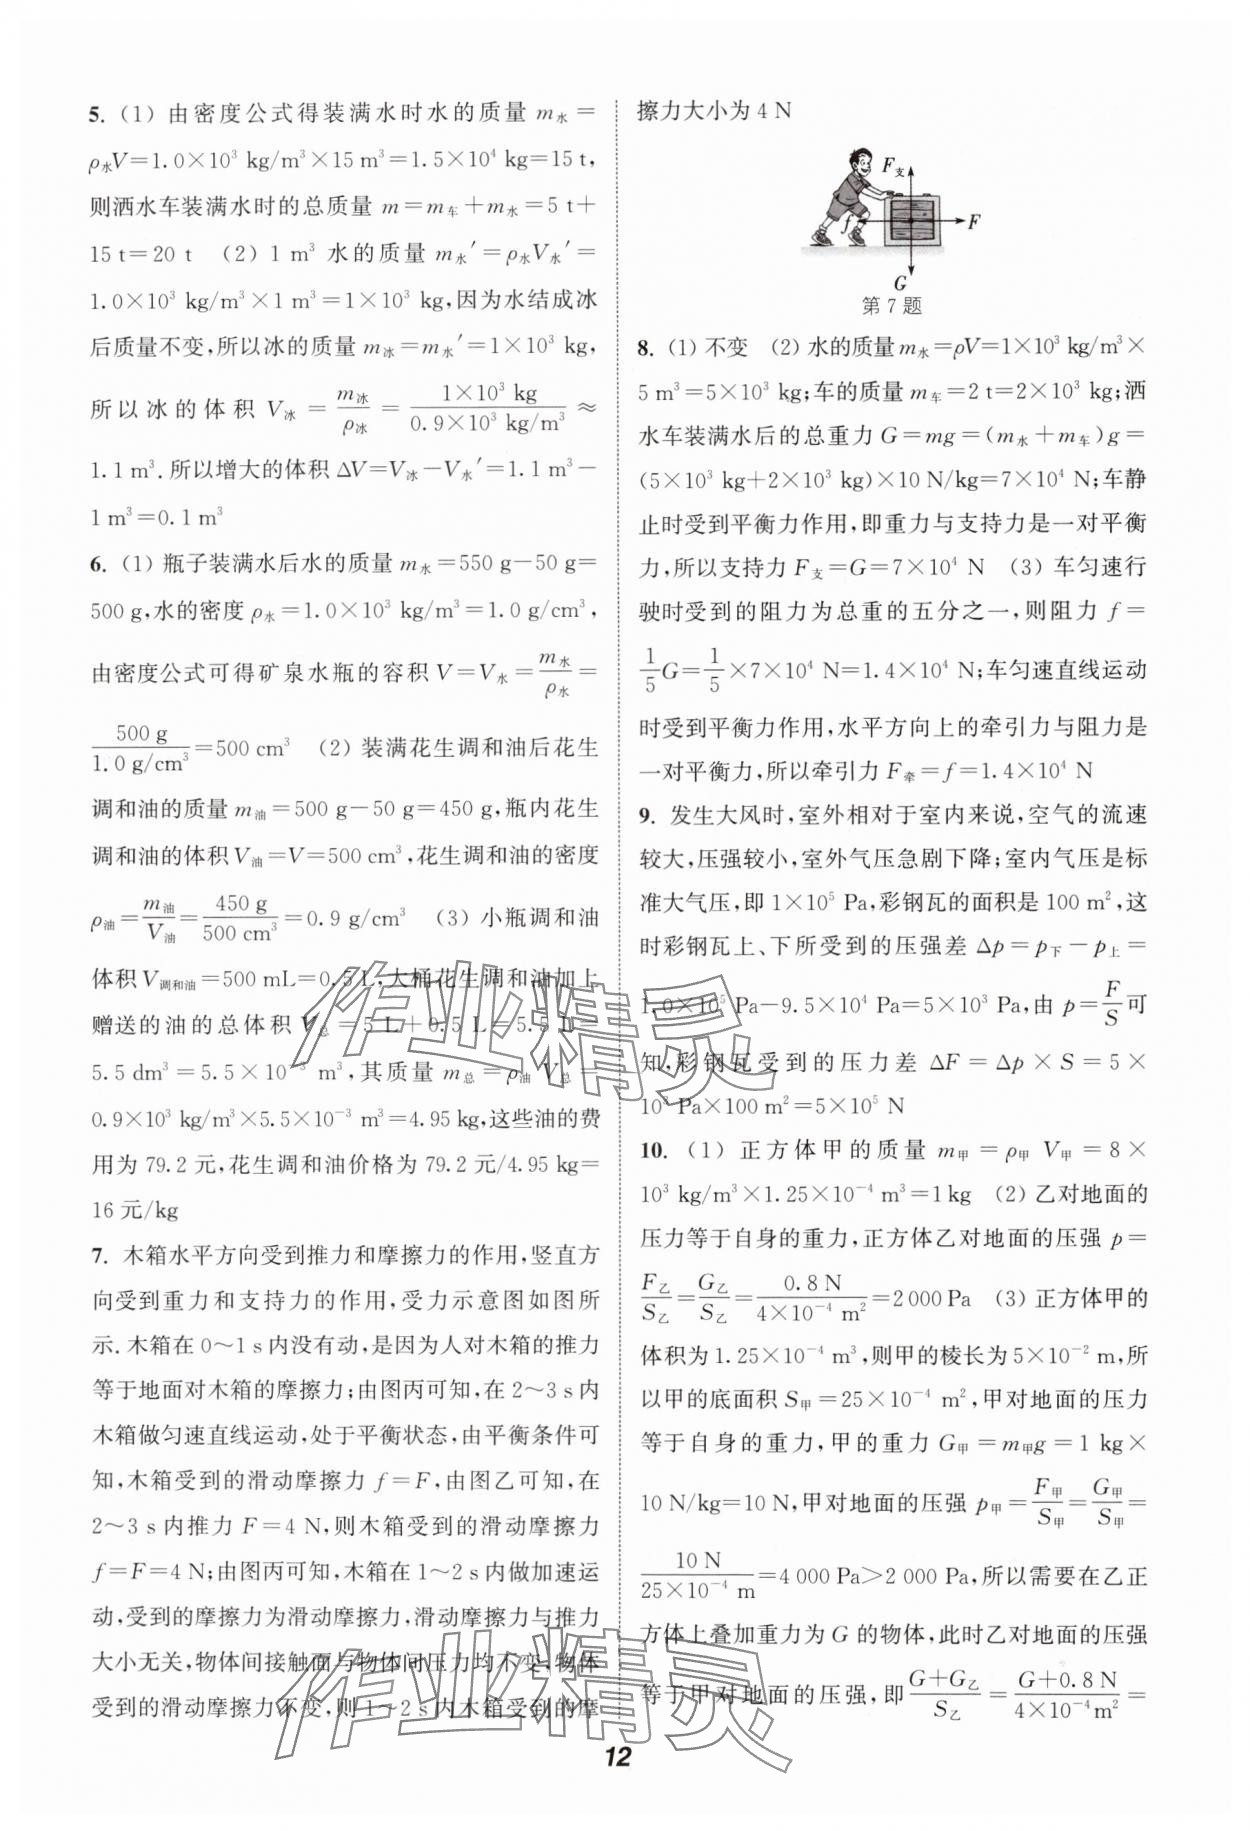 5. (1) 由密度公式得装满水时水的质量 m水＝
ρ水V＝1.0×10³ kg/m³×15 m³＝1.5×10⁴ kg＝15 t,
则洒水车装满水时的总质量 m＝m车＋m水＝5 t＋
15 t＝20 t (2) 1 m³ 水的质量 m水′＝ρ水V水′＝
1.0×10³ kg/m³×1 m³＝1×10³ kg,因为水结成冰
后质量不变,所以冰的质量 m冰＝m水′＝1×10³ kg,
所以冰的体积 V冰＝m冰/ρ冰＝1×10³ kg/0.9×10³ kg/m³≈
1.1 m³.所以增大的体积 ΔV＝V冰－V水′＝1.1 m³－
1 m³＝0.1 m³
6. (1) 瓶子装满水后水的质量 m水＝550 g－50 g＝
500 g,水的密度 ρ水＝1.0×10³ kg/m³＝1.0 g/cm³,
由密度公式可得矿泉水瓶的容积 V＝V水＝m水/ρ水＝
500 g/1.0 g/cm³＝500 cm³ (2) 装满花生调和油后花生
调和油的质量 m油＝500 g－50 g＝450 g,瓶内花生
调和油的体积 V油＝V＝500 cm³,花生调和油的密度
ρ油＝m油/V油＝450 g/500 cm³＝0.9 g/cm³ (3) 小瓶调和油
体积 V调和油＝500 mL＝0.5 L,大桶花生调和油加上
赠送的油的总体积 V总＝5 L＋0.5 L＝5.5 L＝
5.5 dm³＝5.5×10⁻³ m³,其质量 m总＝ρ油 V总＝
0.9×10³ kg/m³×5.5×10⁻³ m³＝4.95 kg,这些油的费
用为 79.2 元,花生调和油价格为 79.2 元/4.95 kg＝
16 元/kg
7. 木箱水平方向受到推力和摩擦力的作用,竖直方
向受到重力和支持力的作用,受力示意图如图所
示.木箱在 0～1 s 内没有动,是因为人对木箱的推力
等于地面对木箱的摩擦力;由图丙可知,在 2～3 s 内
木箱做匀速直线运动,处于平衡状态,由平衡条件可
知,木箱受到的滑动摩擦力 f＝F,由图乙可知,在
2～3 s 内推力 F＝4 N,则木箱受到的滑动摩擦力
f＝F＝4 N;由图丙可知,木箱在 1～2 s 内做加速运
动,受到的摩擦力为滑动摩擦力,滑动摩擦力与推力
大小无关,物体间接触面与物体间压力均不变,物体
受到的滑动摩擦力不变,则 1～2 s 内木箱受到的摩
擦力大小为 4 N
F支
f
F
G
第 7 题
8. (1) 不变 (2) 水的质量 m水＝ρV＝1×10³ kg/m³×
5 m³＝5×10³ kg;车的质量 m车＝2 t＝2×10³ kg;洒
水车装满水后的总重力 G＝mg＝(m水＋m车)g＝
(5×10³ kg＋2×10³ kg)×10 N/kg＝7×10⁴ N;车静
止时受到平衡力作用,即重力与支持力是一对平衡
力,所以支持力 F支＝G＝7×10⁴ N (3) 车匀速行
驶时受到的阻力为总重的五分之一,则阻力 f＝
1/5G＝1/5×7×10⁴ N＝1.4×10⁴ N;车匀速直线运动
时受到平衡力作用,水平方向上的牵引力与阻力是
一对平衡力,所以牵引力 F牵＝f＝1.4×10⁴ N
9. 发生大风时,室外相对于室内来说,空气的流速
较大,压强较小,室外气压急剧下降;室内气压是标
准大气压,即 1×10⁵ Pa,彩钢瓦的面积是 100 m²,这
时彩钢瓦上、下所受到的压强差 Δp＝p下－p上＝
1.0×10⁵ Pa－9.5×10⁴ Pa＝5×10³ Pa,由 p＝F/S可
知,彩钢瓦受到的压力差 ΔF＝Δp×S＝5×
10³ Pa×100 m²＝5×10⁵ N
10. (1) 正方体甲的质量 m甲＝ρ甲 V甲＝8×
10³ kg/m³×1.25×10⁻⁴ m³＝1 kg (2) 乙对地面的
压力等于自身的重力,正方体乙对地面的压强 p＝
F乙/S乙＝G乙/S乙＝0.8 N/4×10⁻⁴ m²＝2 000 Pa (3) 正方体甲的
体积为 1.25×10⁻⁴ m³,则甲的棱长为 5×10⁻² m,所
以甲的底面积 S甲＝25×10⁻⁴ m²,甲对地面的压力
等于自身的重力,甲的重力 G甲＝m甲g＝1 kg×
10 N/kg＝10 N,甲对地面的压强 p甲＝F甲/S甲＝G甲/S甲＝
10 N/25×10⁻⁴ m＝4 000 Pa＞2 000 Pa,所以需要在乙正
方体上叠加重力为 G 的物体,此时乙对地面的压强
等于甲对地面的压强,即G＋G乙/S乙＝G＋0.8 N/4×10⁻⁴m²＝
作业精灵
作业精灵
12